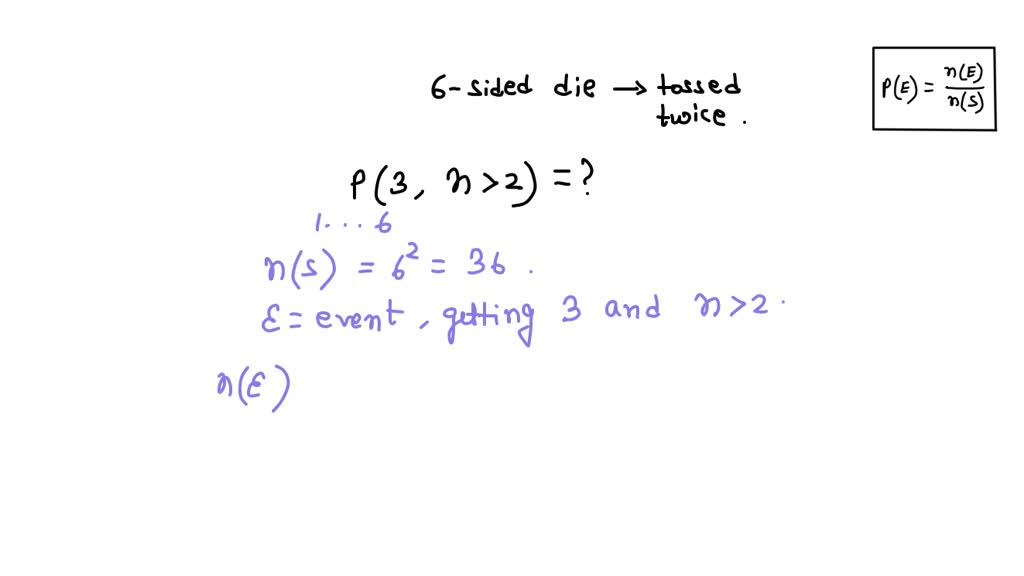 6-sided die → tossed
twice.
P(E) = n(E)/n(S)
P(3, n>2) = ?
1...6
n(S) = 6² = 36.
E = event, getting 3 and n>2.
n(E)